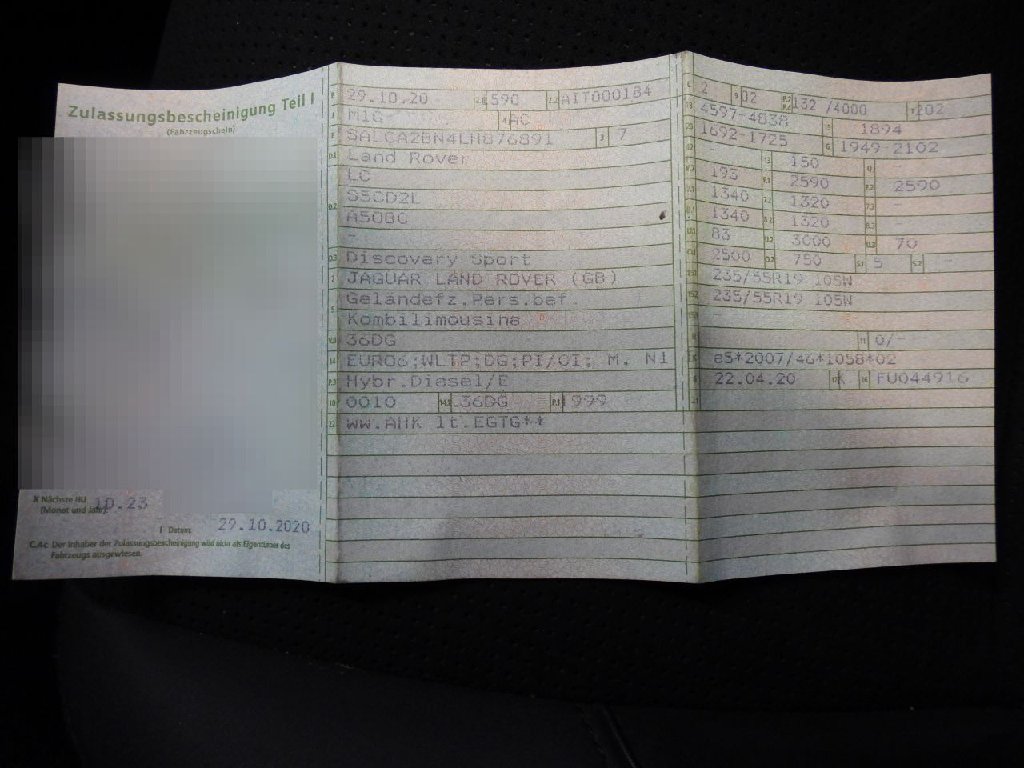 Zulassungsbescheinigung Teil I
(Fahrzeugschein)
X Nächste HU
(Monat und Jahr) 10.23
I Datum 29.10.2020
C.4c Der Inhaber der Zulassungsbescheinigung wird nicht als Eigentümer des
Fahrzeugs ausgewiesen.
29.10.20 590 AIT000184
M1G AC
SALCA2BN4LH876891 7
Land Rover
LC
S5CD2L
A508C
-
Discovery Sport
JAGUAR LAND ROVER (GB)
Geländefz.Pers.bef.
Kombilimousine
36DG
EURO6;WLTP;DG;PI/CI; M, N1
Hybr.Diesel/E
0010 14.1 36DG 1999
ww.AHK lt.EGTG**
2 02 132 /4000 202
4597-4838 1894
1692-1725 1949-2102
150
195 2590 2590
1340 1320 -
1340 1320 -
83 3000 70
2500 750 5 -
235/55R19 105W
235/55R19 105W
-
0/-
e5*2007/46*1058*02
22.04.20 K FU044916